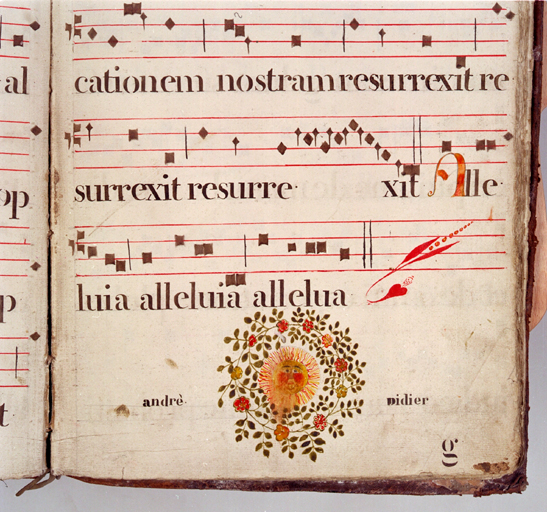 al
op
p
t
cationem nostram resurrexit re
surrexit resurre xit Alle
luia alleluia allelua
andrè Didier
g